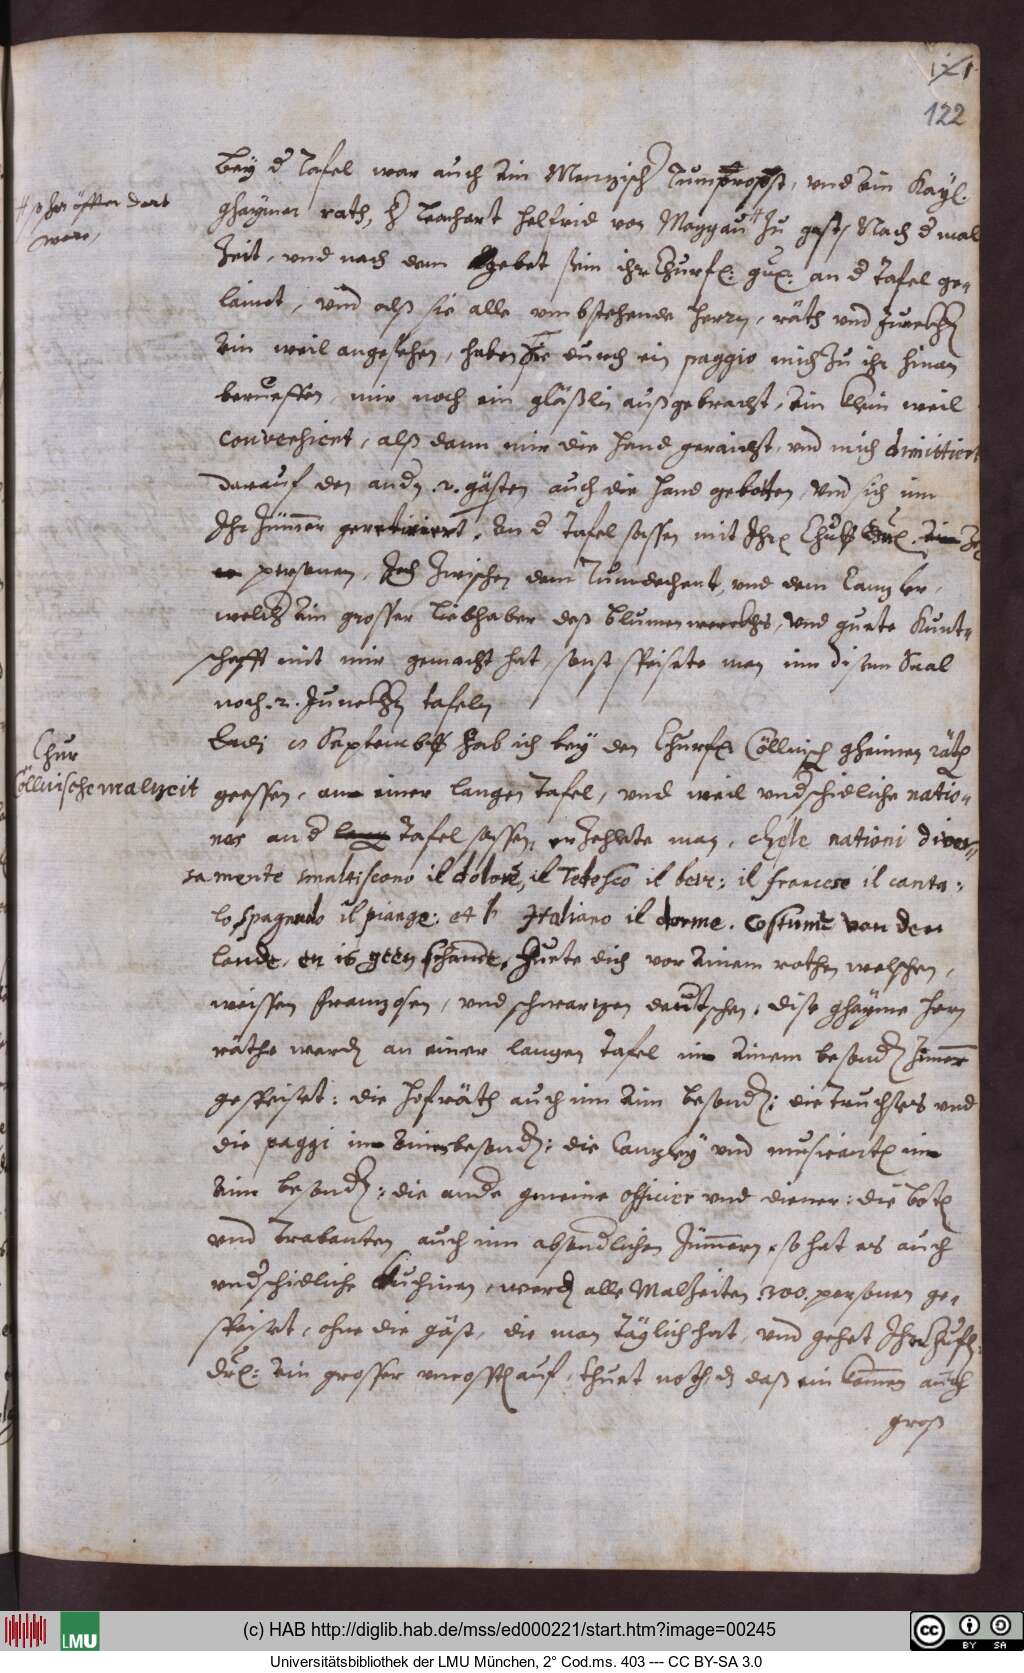 121
122
bey d Tafel war auch ein Mentzisch Tumpropst, vnd ein Kayl.
# so hei öffter dort
were,
ghaymer rath, h Leonhart Helfrid von Meggau # zu gast, Nach d mal
Zeit, vnd nach dem gebet sein ihr Churfl: gnd: an d Tafel ge-
lainet, vnd alß sie alle vmbstehende Herrn, räth vnd Junckhern
ein weil angesehen, haben Sie durch ein paggio mich zu ihr hinan
berueffen, mir noch ein gläßlin außgebracht, ein klein weil
conversiert, alß dann mir die hand geraicht, vnd mich dimittiert
darauf den andern .2. gästen auch die hand gebotten, vnd sich inn
Ihr Zimmer geretiriert, an d Tafel sassen mit Ihr Churf.
personen, Ich zwischen dem Tumdechent, und dem Cantzler,
welcher ein grosser Liebhaber deß bluemenwerckhs, vnd guete Kunt-
schafft mit mir gemacht hat, sonst speisete man inn disem Saal
noch .2. Junckhern tafeln
September hab ich bey den Churfl Cöllnisch gheimen räth
Chur
Cöllnische malzeit
geessen, ann einer langen Tafel, vnd weil vnderschidliche natio-
nes an d lang Tafel sassen, erzehlete man, che le nationi diver-
samente smaltiscono il dolore, il Tedesco il beve: il francese il canta:
lo spagnolo il piange: et l' Italiano il dorme. Costume van den
lande, en is geen schande, Huete dich vor einem rothen welschen,
weissen frantzosen, vnd schwartzen deutschen, dise ghayme herrn
räthe werden an einer langen Tafel inn einem besondern Zimmer
gespeiset: die hofräth auch inn eim besondern: die Truchses vnd
die paggi inn einem besondern: die Cantzley vnd musicanten inn
eim besondern: die andere gmeine officier vnd diener: die boten
vnd Trabanten auch inn absonderlichen Zimmern, so hat es auch
vnderschidliche kuchinen, werden alle Malzeiten .300. personen ge-
speiset, ohne die gäst, die man täglich hat, vnd gehet Ihr Churfl:
drl: ein grosser vncosten auf, thuet noth, daß ein kommen auch
groß
(c) HAB http://diglib.hab.de/mss/ed000221/start.htm?image=00245
LMU
cc BY SA
Universitätsbibliothek der LMU München, 2° Cod.ms. 403 --- CC BY-SA 3.0